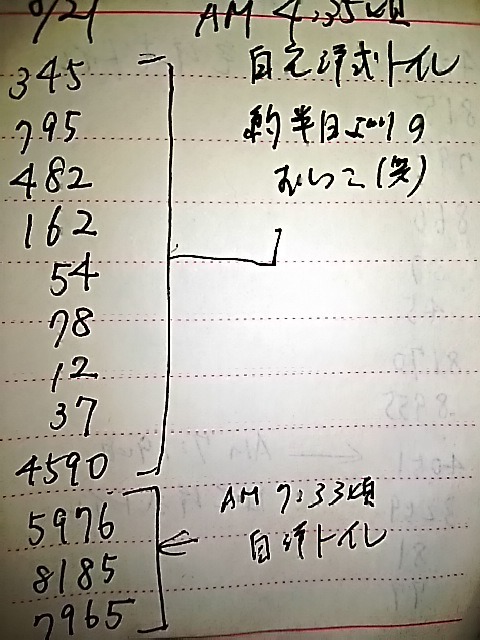 9/21 AM 4:35頃
345 自宅洋式トイレ
795 約半日ぶりの
482 おしっこ(笑)
162
54
78
12
37
4590
5976 AM 7:33頃
8185 自洋トイレ
7965